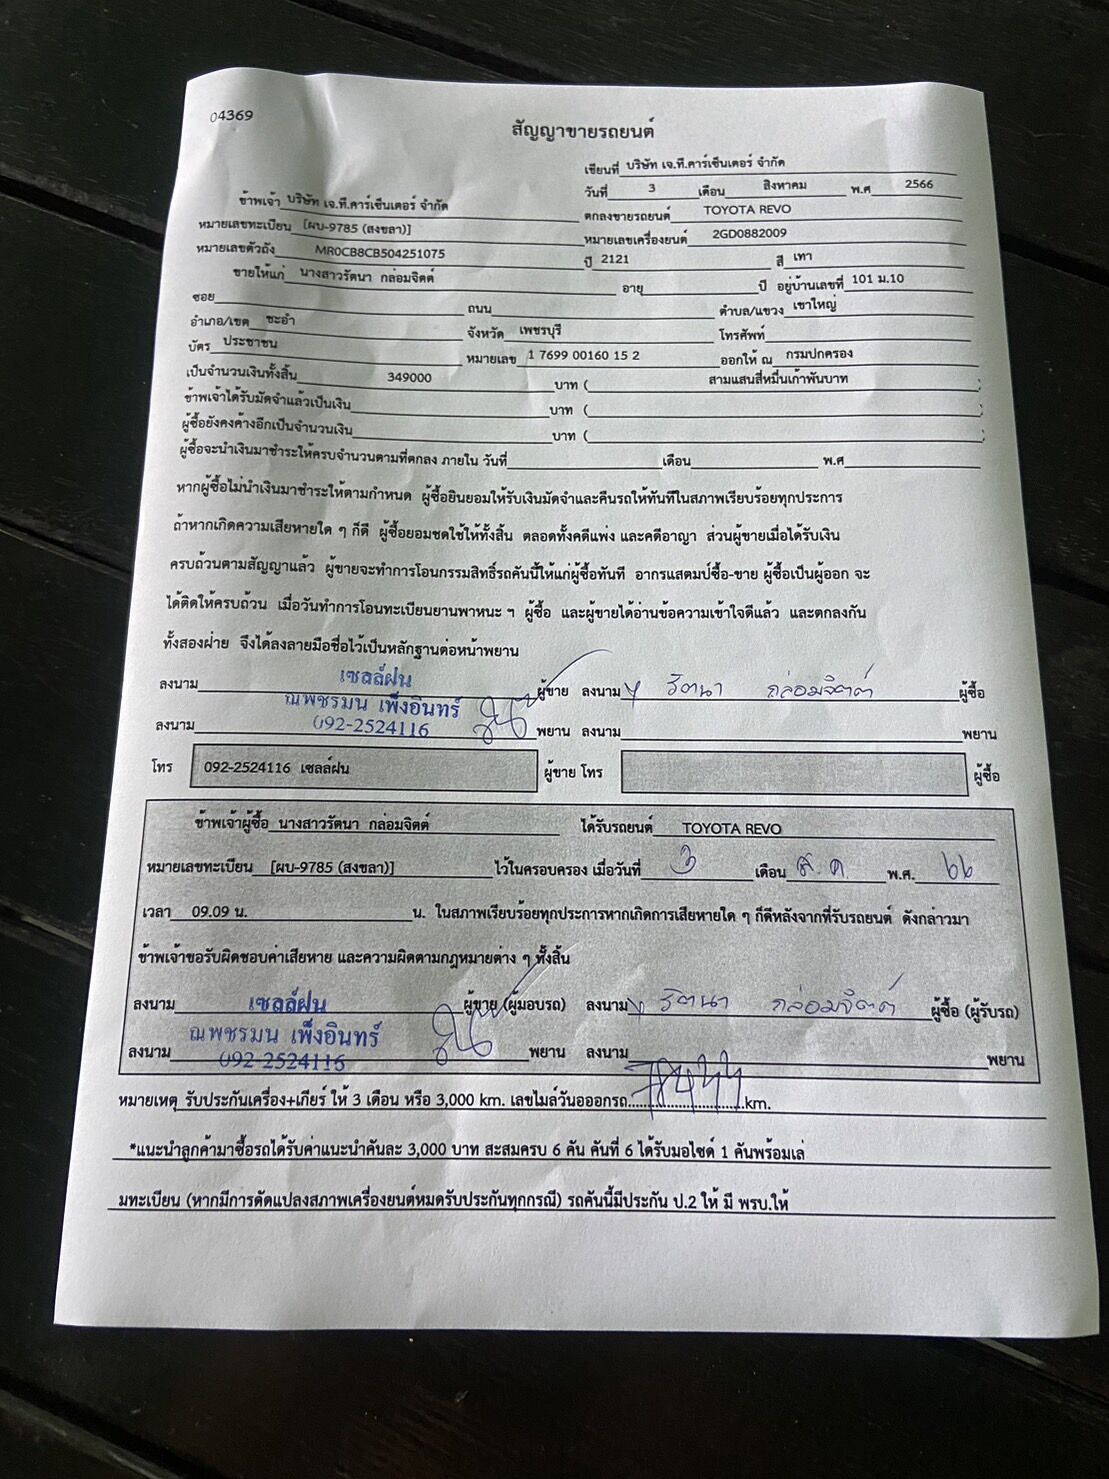 04369
สัญญาขายรถยนต์
เขียนที่ บริษัท เจ.ที.คาร์เซ็นเตอร์ จำกัด
วันที่ 3 เดือน สิงหาคม พ.ศ 2566
ข้าพเจ้า บริษัท เจ.ที.คาร์เซ็นเตอร์ จำกัด ตกลงขายรถยนต์ TOYOTA REVO
หมายเลขทะเบียน [ผบ-9785 (สงขลา)] หมายเลขเครื่องยนต์ 2GD0882009
หมายเลขตัวถัง MR0CB8CB504251075 ปี 2121 สี เทา
ขายให้แก่ นางสาวรัตนา กล่อมจิตต์ อายุ ปี อยู่บ้านเลขที่ 101 ม.10
ซอย ถนน ตำบล/แขวง เขาใหญ่
อำเภอ/เขต ชะอำ จังหวัด เพชรบุรี โทรศัพท์
บัตร ประชาชน หมายเลข 1 7699 00160 15 2 ออกให้ ณ กรมปกครอง
เป็นจำนวนเงินทั้งสิ้น 349000 บาท ( สามแสนสี่หมื่นเก้าพันบาท )
ข้าพเจ้าได้รับมัดจำแล้วเป็นเงิน บาท ( )
ผู้ซื้อยังคงค้างอีกเป็นจำนวนเงิน บาท ( )
ผู้ซื้อจะนำเงินมาชำระให้ครบจำนวนตามที่ตกลง ภายใน วันที่ เดือน พ.ศ
หากผู้ซื้อไม่นำเงินมาชำระให้ตามกำหนด ผู้ซื้อยินยอมให้รับเงินมัดจำและคืนรถให้ทันทีในสภาพเรียบร้อยทุกประการ
ถ้าหากเกิดความเสียหายใด ๆ ก็ดี ผู้ซื้อยอมชดใช้ให้ทั้งสิ้น ตลอดทั้งคดีแพ่ง และคดีอาญา ส่วนผู้ขายเมื่อได้รับเงิน
ครบถ้วนตามสัญญาแล้ว ผู้ขายจะทำการโอนกรรมสิทธิ์รถคันนี้ให้แก่ผู้ซื้อทันที อากรแสตมป์ซื้อ-ขาย ผู้ซื้อเป็นผู้ออก จะ
ได้ติดให้ครบถ้วน เมื่อวันทำการโอนทะเบียนยานพาหนะ ฯ ผู้ซื้อ และผู้ขายได้อ่านข้อความเข้าใจดีแล้ว และตกลงกัน
ทั้งสองฝ่าย จึงได้ลงลายมือชื่อไว้เป็นหลักฐานต่อหน้าพยาน
ลงนาม เซลล์ฝน ผู้ขาย ลงนาม รัตนา กล่อมจิตต์ ผู้ซื้อ
ณพชรมน เพ็งอินทร์
ลงนาม 092-2524116 พยาน ลงนาม พยาน
โทร 092-2524116 เซลล์ฝน ผู้ขาย โทร ผู้ซื้อ
ข้าพเจ้าผู้ซื้อ นางสาวรัตนา กล่อมจิตต์ ได้รับรถยนต์ TOYOTA REVO
หมายเลขทะเบียน [ผบ-9785 (สงขลา)] ไว้ในครอบครอง เมื่อวันที่ 3 เดือน ส.ค. พ.ศ. ๖๖
เวลา 09.09 น. น. ในสภาพเรียบร้อยทุกประการหากเกิดการเสียหายใด ๆ ก็ดีหลังจากที่รับรถยนต์ ดังกล่าวมา
ข้าพเจ้าขอรับผิดชอบค่าเสียหาย และความผิดตามกฎหมายต่าง ๆ ทั้งสิ้น
ลงนาม เซลล์ฝน ผู้ขาย (ผู้มอบรถ) ลงนาม รัตนา กล่อมจิตต์ ผู้ซื้อ (ผู้รับรถ)
ณพชรมน เพ็งอินทร์
ลงนาม 092-2524116 พยาน ลงนาม พยาน
หมายเหตุ รับประกันเครื่อง+เกียร์ ให้ 3 เดือน หรือ 3,000 km. เลขไมล์วันอออกรถ..............................km.
*แนะนำลูกค้ามาซื้อรถได้รับค่าแนะนำคันละ 3,000 บาท สะสมครบ 6 คัน คันที่ 6 ได้รับมอไซด์ 1 คันพร้อมเล่
มทะเบียน (หากมีการดัดแปลงสภาพเครื่องยนต์หมดรับประกันทุกกรณี) รถคันนี้มีประกัน ป.2 ให้ มี พรบ.ให้